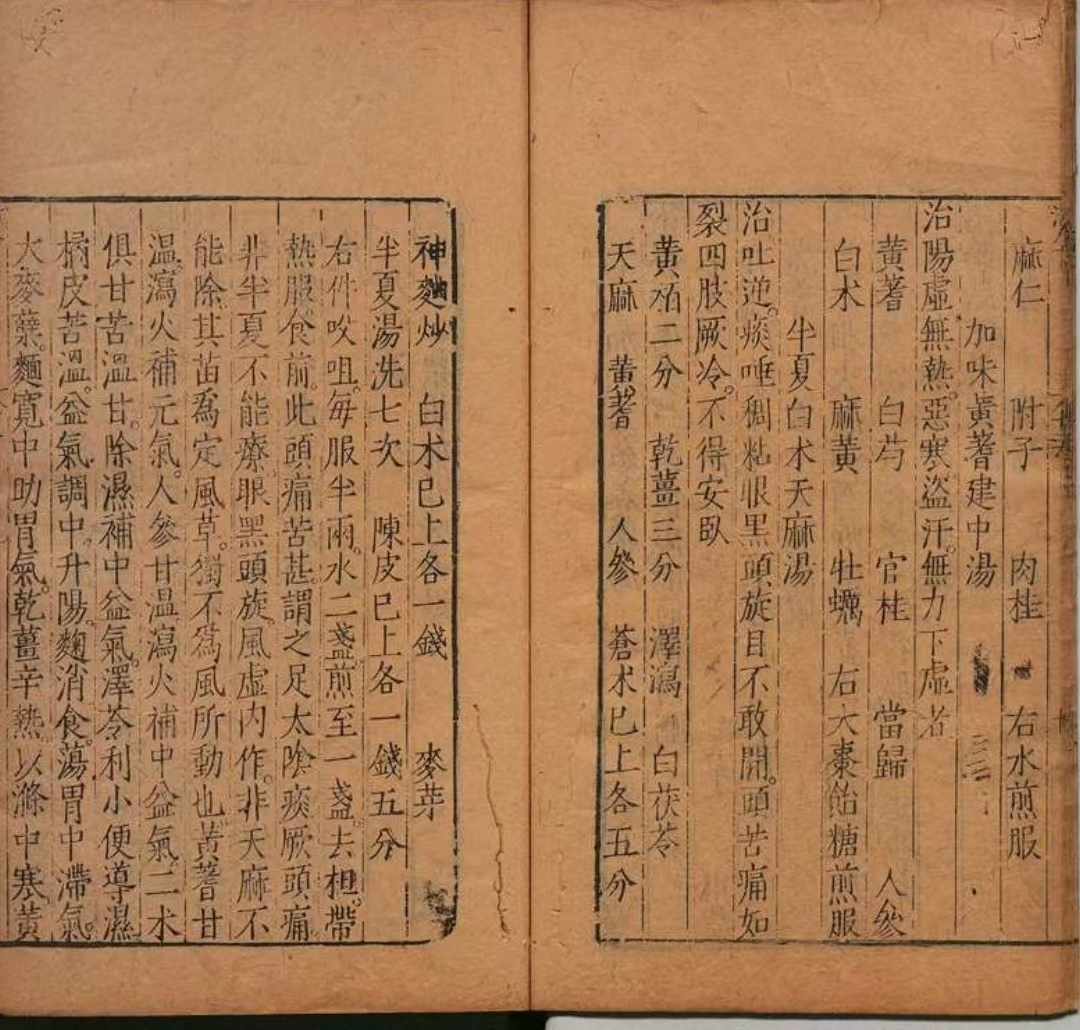 麻仁 附子 肉桂 右水煎服
加味黃蓍建中湯
治陽虛無熱惡寒盜汗無力下虛者
黃蓍 白芍 官桂 當歸 人參
白朮 麻黃 牡蠣 右大棗飴糖煎服
半夏白朮天麻湯
治吐逆痰唾稠粘眼黑頭旋目不敢開頭苦痛如
裂四肢厥冷不得安臥
黃栢二分 乾薑三分 澤瀉 白茯苓
天麻 黃蓍 人參 蒼朮巳上各五分
神麴炒 白朮巳上各一錢 麥芽
半夏湯洗七次 陳皮巳上各一錢五分
右件㕮咀每服半兩水二盞煎至一盞去柤帶
熱服食前此頭痛苦甚謂之足太陰痰厥頭痛
非半夏不能療眼黑頭旋風虛內作非天麻不
能除其苗爲定風草獨不爲風所動也黃蓍甘
溫瀉火補元氣人參甘溫瀉火補中益氣二朮
俱甘苦溫甘除濕補中益氣澤苓利小便導濕
橘皮苦溫益氣調中升陽麴消食蕩胃中滯氣
大麥蘗麵寬中助胃氣乾薑辛熱以滌中寒黃